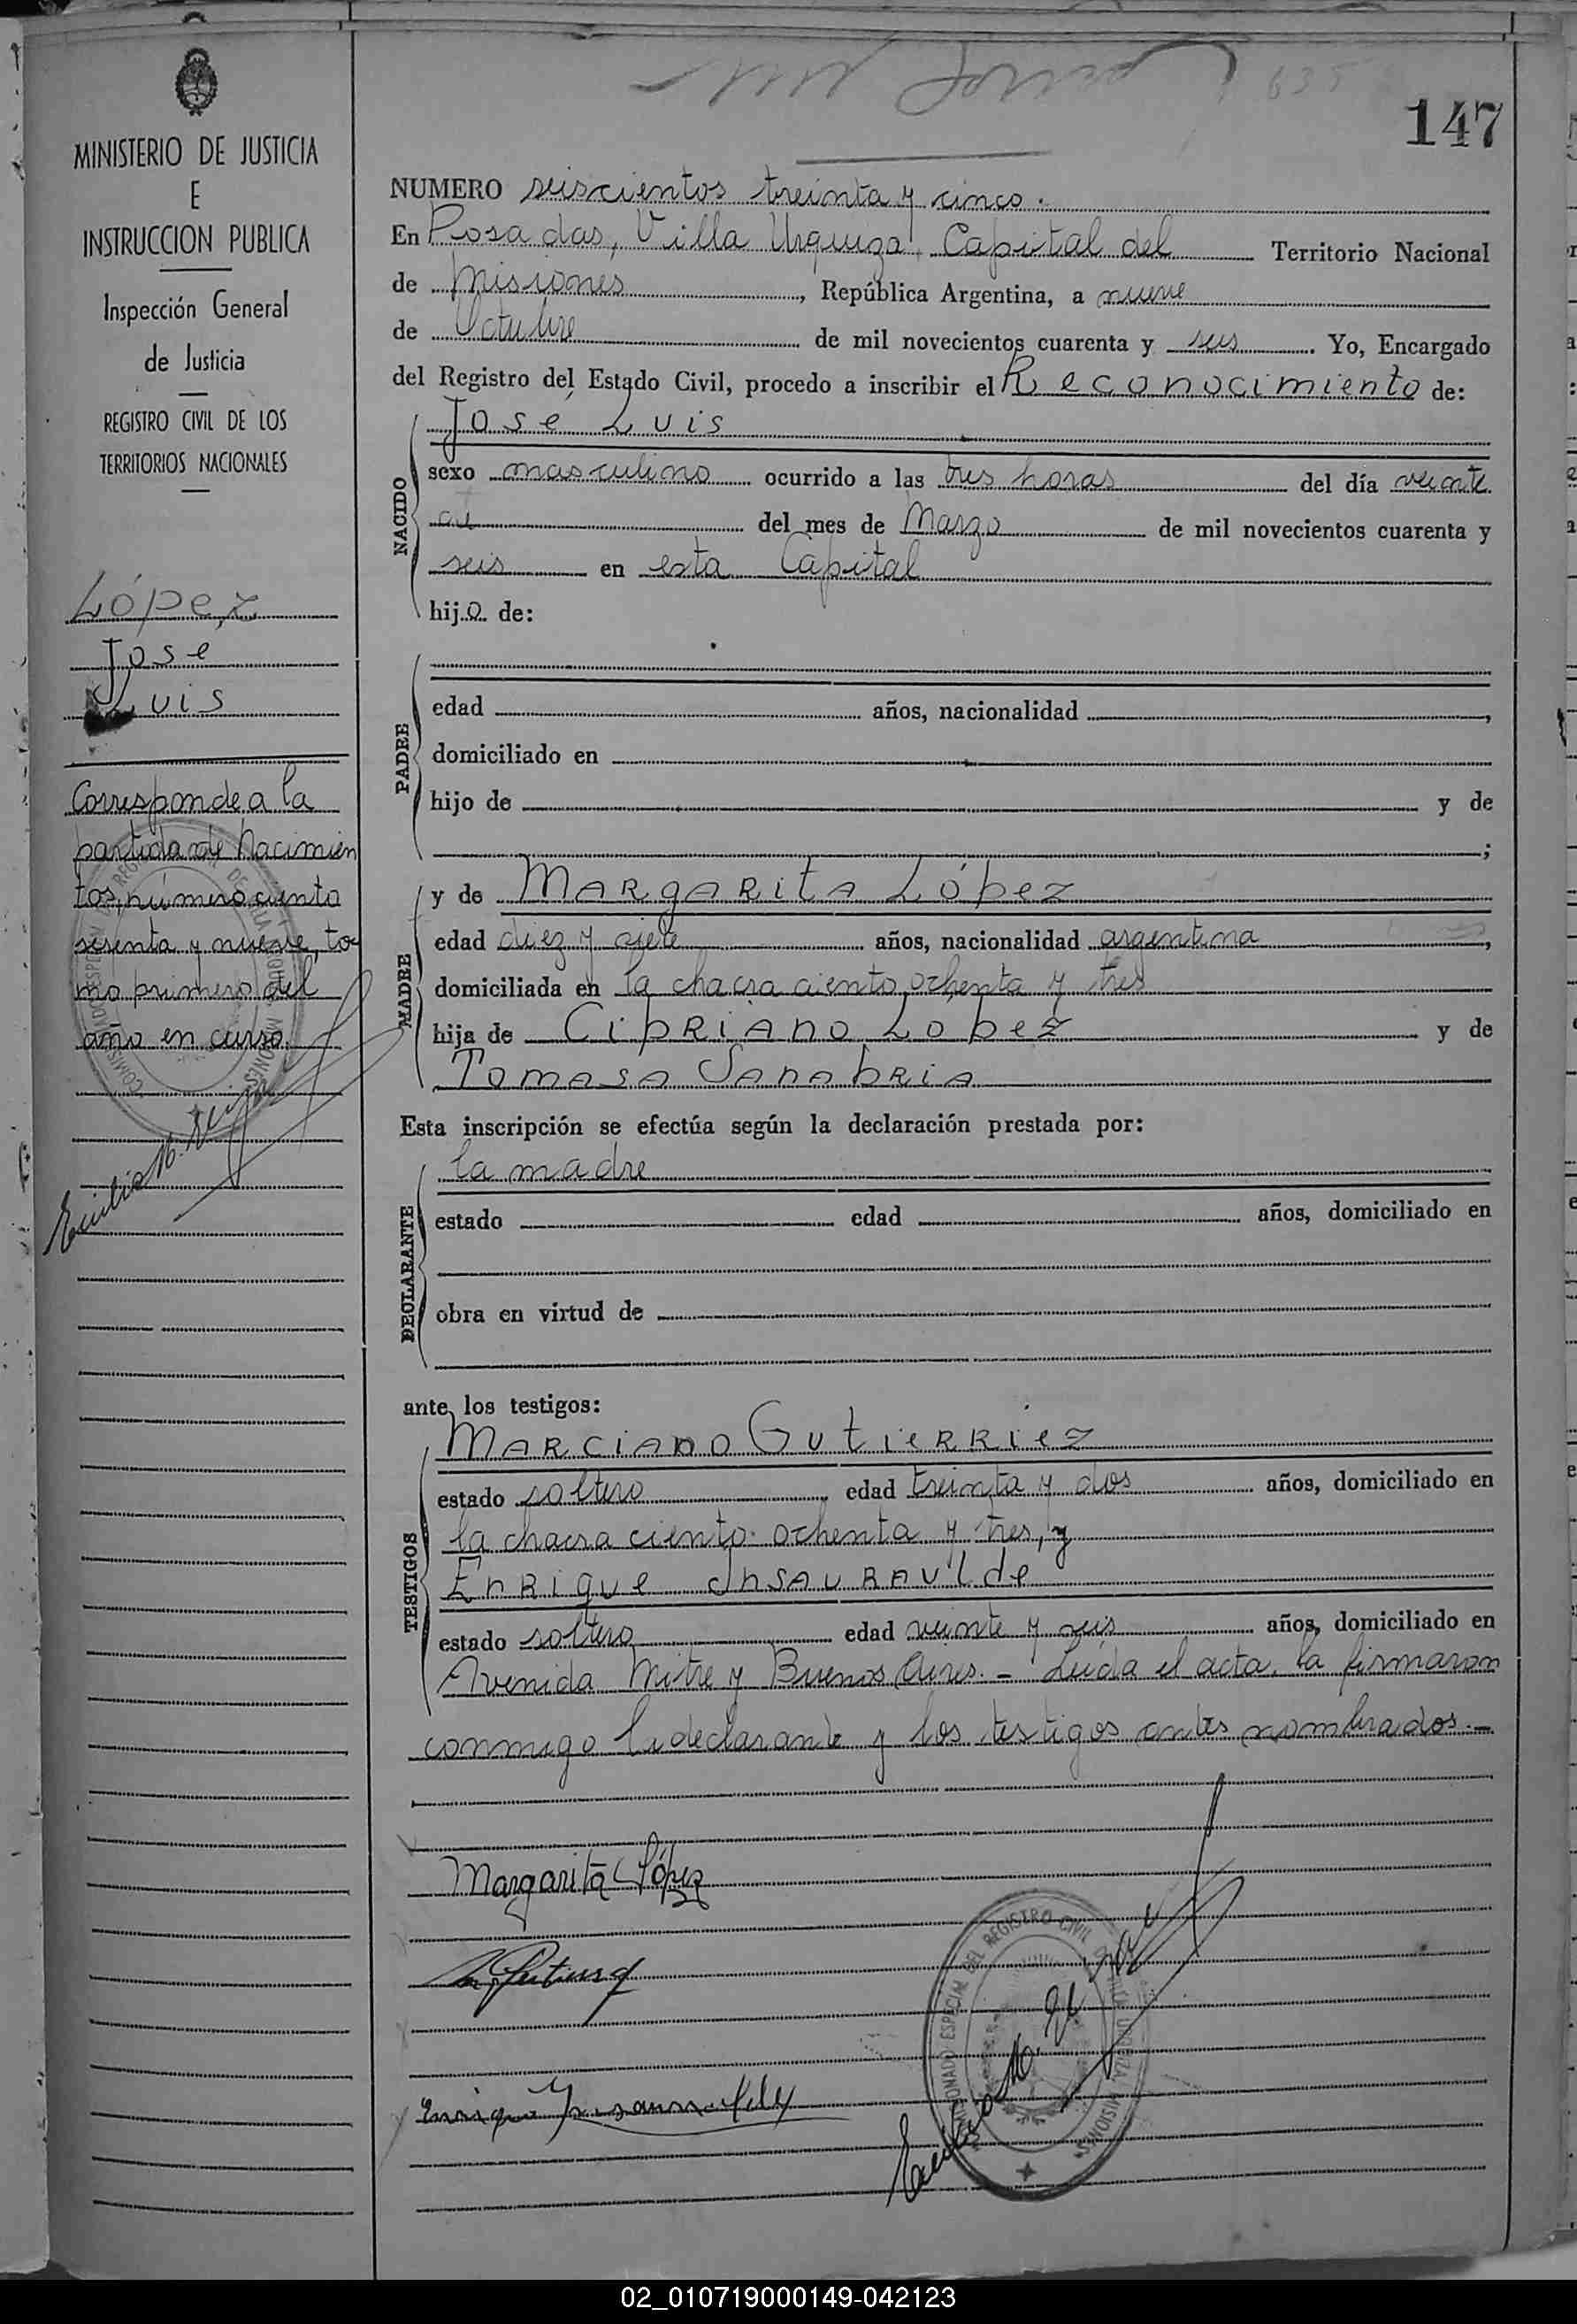 635
147
MINISTERIO DE JUSTICIA
E
INSTRUCCION PUBLICA
Inspección General
de Justicia
REGISTRO CIVIL DE LOS
TERRITORIOS NACIONALES
López
Jose
Luis
Corresponde a la
partida de Nacimien
tos, número ciento
sesenta y nueve, to-
mo primero del
año en curso.
NUMERO seiscientos treinta y cinco.
En Posadas, Villa Urquiza, Capital del Territorio Nacional
de Misiones, República Argentina, a nueve
de Octubre de mil novecientos cuarenta y seis. Yo, Encargado
del Registro del Estado Civil, procedo a inscribir el Reconocimiento de:
José Luis
NACIDO
sexo masculino ocurrido a las tres horas del día veinte
del mes de Marzo de mil novecientos cuarenta y
seis en esta Capital
hijo de:
PADRE
edad años, nacionalidad ,
domiciliado en
hijo de y de
;
MADRE
y de Margarita López
edad diez y años, nacionalidad argentina,
domiciliada en la chacra ciento ochenta y tres
hija de Cipriano Lopez y de
Tomasa Sanabria
Esta inscripción se efectúa según la declaración prestada por:
DECLARANTE
la madre
estado edad años, domiciliado en
obra en virtud de
ante los testigos:
TESTIGOS
Marciano Gutierriez
estado soltero, edad treinta y dos años, domiciliado en
la chacra ciento ochenta y tres, y
Enrique Insauravlde
estado soltero edad veinte y seis años, domiciliado en
Avenida Mitre y Buenos Aires.- Leída el acta, la firmaron
conmigo la declarante y los testigos antes nombrados.-
Margarita López
02_010719000149-042123